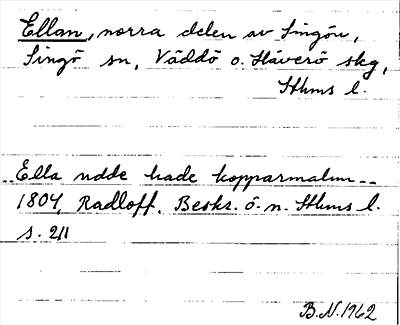 Ellan, norra delen av Singön,
Singö sn, Väddö o. Häverö skg,
Sthms l.
..Ella udde hade kopparmalm--
1804, Radloff, Beskr. ö. n. Sthms l.
s. 211
B.N. 1962